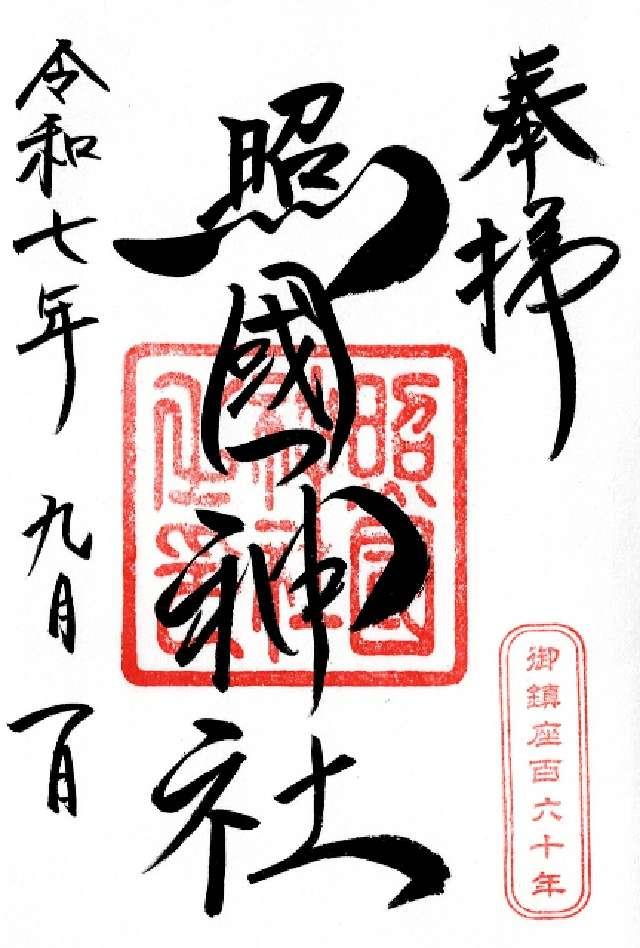 奉拝
照國神社
令和七年 九月一日
照國
神社
御鎮座百六十年